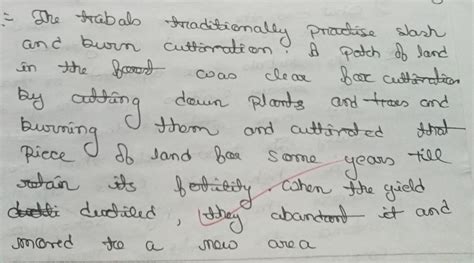 :- The trabals traditionally practise slash
and burn cuttivation. A patch of land
in the forest was clear for cuttivation
by cutting down plants and trees and
burning them and cuttivated that
piece of land for some years till
retain its fertility. when the yield
declined, they abandont it and
moved to a new area